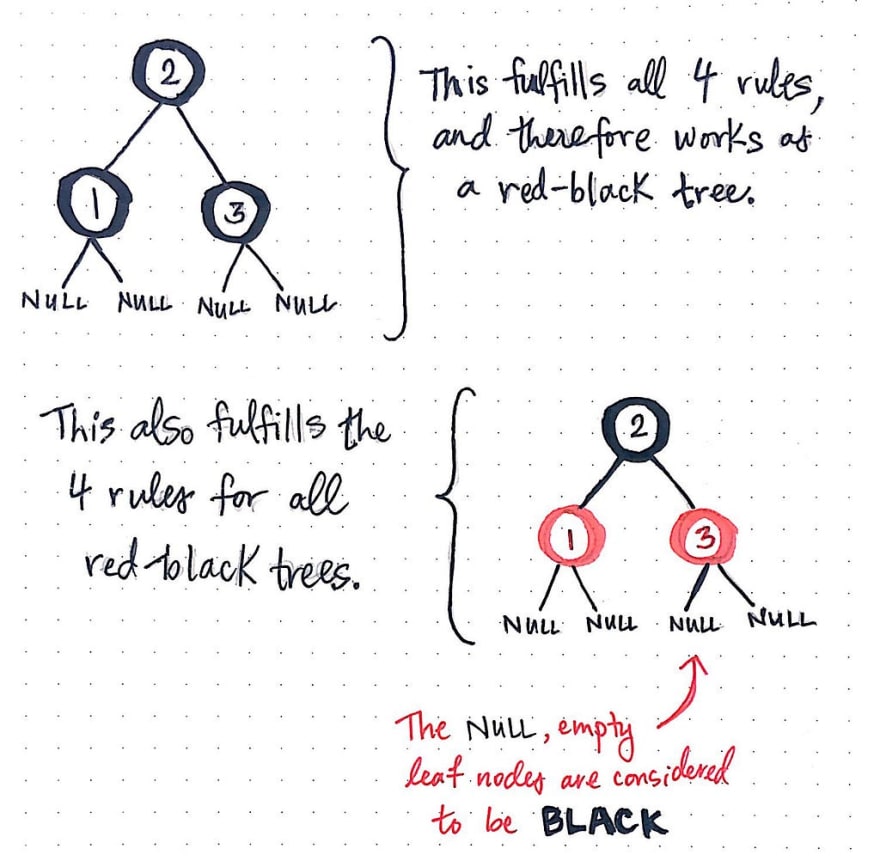 2
This fulfills all 4 rules,
and therefore works as
a red-black tree.
1
3
NULL NULL NULL NULL
This also fulfills the
4 rules for all
red-black trees.
2
1
3
NULL NULL NULL NULL
The NULL, empty
leaf nodes are considered
to be BLACK